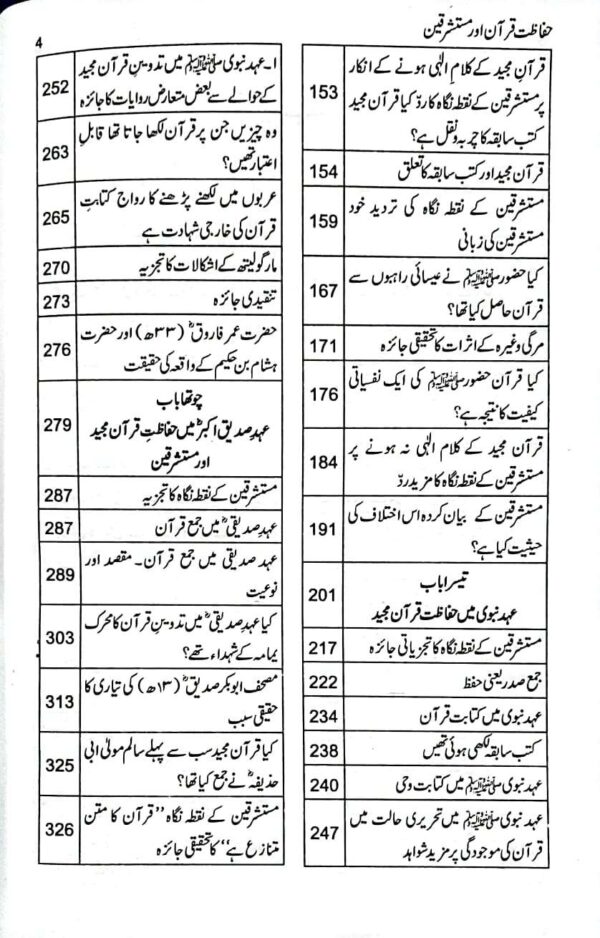 حفاظت قرآن اور مستشرقین
4
قرآن مجید کے کلام الٰہی ہونے کے انکار
پر مستشرقین کے نقطہ نگاہ کا ردّ کیا قرآن مجید
کتب سابقہ کا چربہ ونقل ہے؟
153
قرآن مجید اور کتب سابقہ کا تعلق
154
مستشرقین کے نقطہ نگاہ کی تردید خود
مستشرقین کی زبانی
159
کیا حضور صلی اللہ علیہ وسلم نے عیسائی راہبوں سے
قرآن حاصل کیا تھا؟
167
مرگی وغیرہ کے اثرات کا تحقیقی جائزہ
171
کیا قرآن حضور صلی اللہ علیہ وسلم کی ایک نفسیاتی
کیفیت کا نتیجہ ہے؟
176
قرآن مجید کے کلام الٰہی نہ ہونے پر
مستشرقین کے نقطہ نگاہ کا مزید ردّ
184
مستشرقین کے بیان کردہ اس اختلاف کی
حیثیت کیا ہے؟
191
تیسرا باب
عہد نبوی میں حفاظت قرآن مجید
201
مستشرقین کے نقطہ نگاہ کا تجزیاتی جائزہ
217
جمع صدر یعنی حفظ
222
عہد نبوی میں کتابت قرآن
234
کتب سابقہ لکھی ہوئی تھیں
238
عہد نبوی صلی اللہ علیہ وسلم میں کتابت وحی
240
عہد نبوی صلی اللہ علیہ وسلم میں تحریری حالت میں
قرآن کی موجودگی پر مزید شواہد
247
۱۔ عہد نبوی صلی اللہ علیہ وسلم میں تدوینِ قرآن مجید
کے حوالے سے بعض متعارض روایات کا جائزہ
252
وہ چیزیں جن پر قرآن لکھا جاتا تھا قابلِ
اعتبار تھیں؟
263
عربوں میں لکھنے پڑھنے کا رواج کتابتِ
قرآن کی خارجی شہادت ہے
265
مارگولیتھ کے اشکالات کا تجزیہ
270
تنقیدی جائزہ
273
حضرت عمر فاروقؓ (۳۳ھ) اور حضرت
ہشام بن حکیم کے واقعہ کی حقیقت
276
چوتھا باب
عہد صدیق اکبرؓ میں حفاظتِ قرآن مجید
اور مستشرقین
279
مستشرقین کے نقطہ نگاہ کا تجزیہ
287
عہد صدیقیؓ میں جمع قرآن
287
عہد صدیقی میں جمع قرآن۔ مقصد اور
نوعیت
289
کیا عہد صدیقیؓ میں تدوینِ قرآن کا محرک
یمامہ کے شہداء تھے؟
303
مصحف ابوبکر صدیقؓ (۱۳ھ) کی تیاری کا
حقیقی سبب
313
کیا قرآن مجید سب سے پہلے سالم مولیٰ ابی
حذیفہؓ نے جمع کیا تھا؟
325
مستشرقین کے نقطہ نگاہ ’’قرآن کا متن
متنازع ہے‘‘ کا تحقیقی جائزہ
326